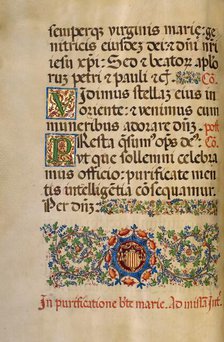 semperq virginis marię: ge
nitricis eiusdēȝ dei & dñi nr̄i
iesu xp̄i: Sed & beatoꝝ aplo
rum petri & pauli &c̄. Cō.
Vidimus stellaȝ eius in
oriente: & uenimus cum
muneribus adorare dñȝ. post
Presta qsum⁹ ops de⁹: Cō.
ut que sollemni celebra
mus officio: purificate men
tis intelligētia cōsequamur.
Per dñȝ:
In purificatione bte marie. Ad missā Int.